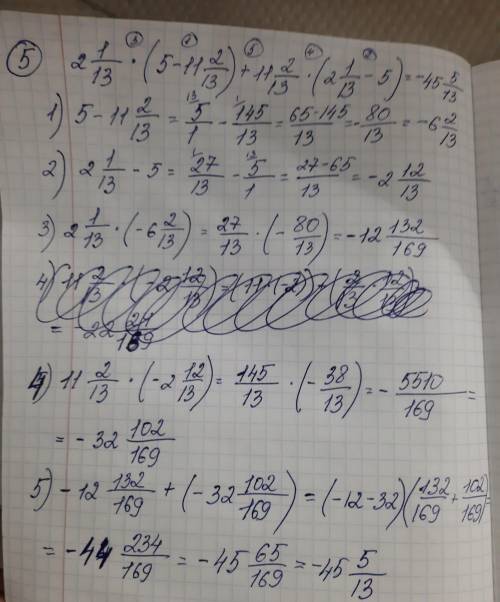 ⑤ 2 1/13 · (5 - 11 2/13) + 11 2/13 · (2 1/13 - 5) = -45 5/13
1) 5 - 11 2/13 = 5/1 - 145/13 = 65-145/13 = -80/13 = -6 2/13
2) 2 1/13 - 5 = 27/13 - 5/1 = 27-65/13 = -2 12/13
3) 2 1/13 · (-6 2/13) = 27/13 · (-80/13) = -12 132/169
4) 11 2/13 · (-2 12/13) = 145/13 · (-38/13) = -5510/169 =
= -32 102/169
5) -12 132/169 + (-32 102/169) = (-12-32)(132/169 + 102/169) =
= -44 234/169 = -45 65/169 = -45 5/13